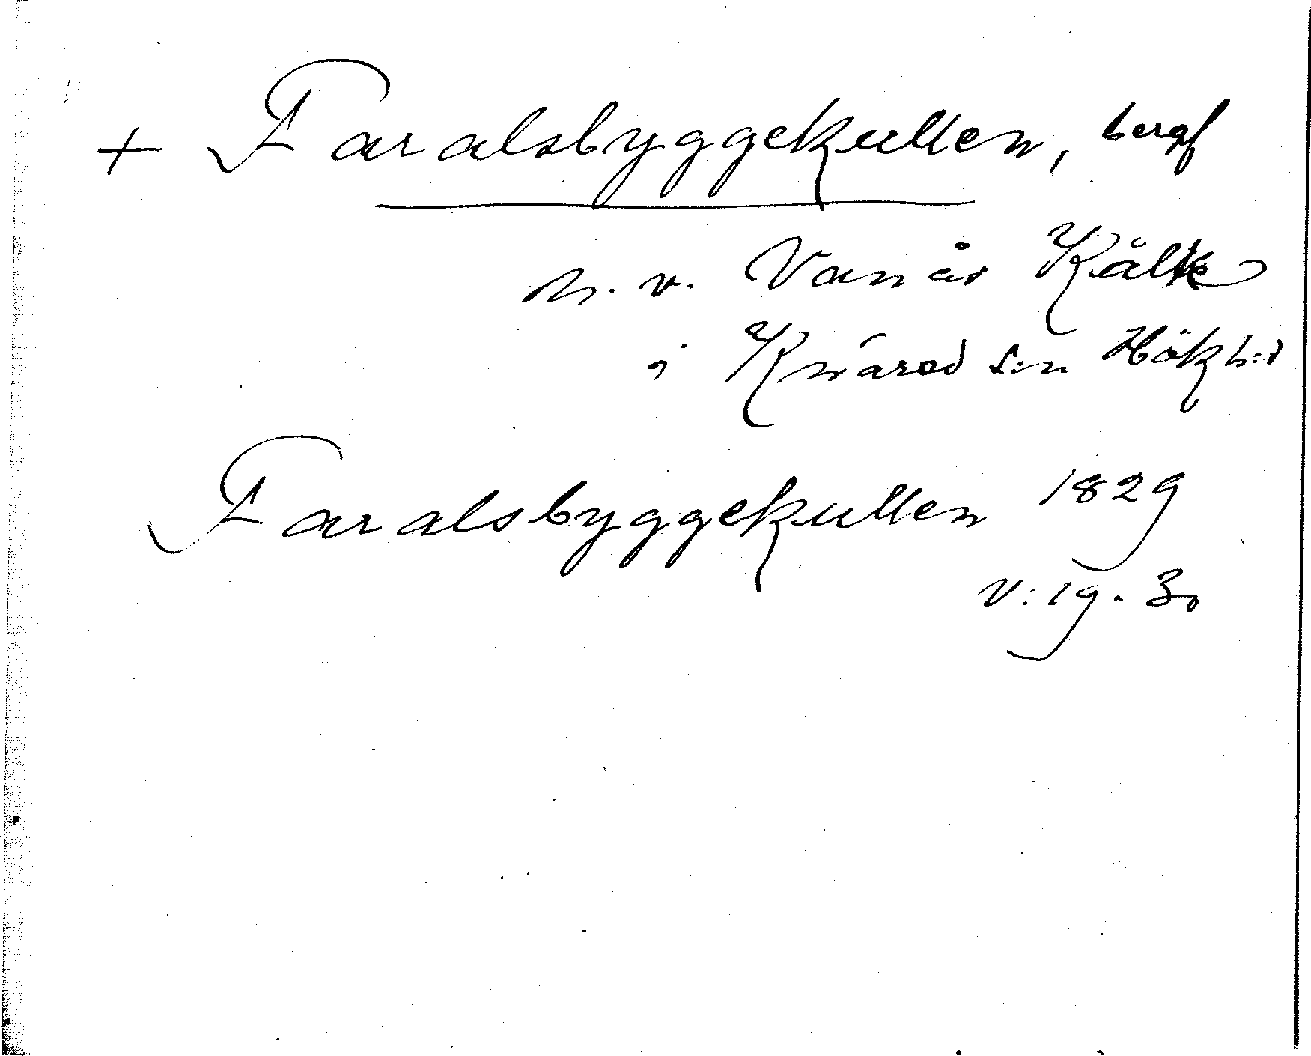 + Faralsbyggekullen, bergf
n. v. Vanås Kälk
i Knäred s:n Hök h:d
Faralsbyggekullen 1829
V: 19. 30